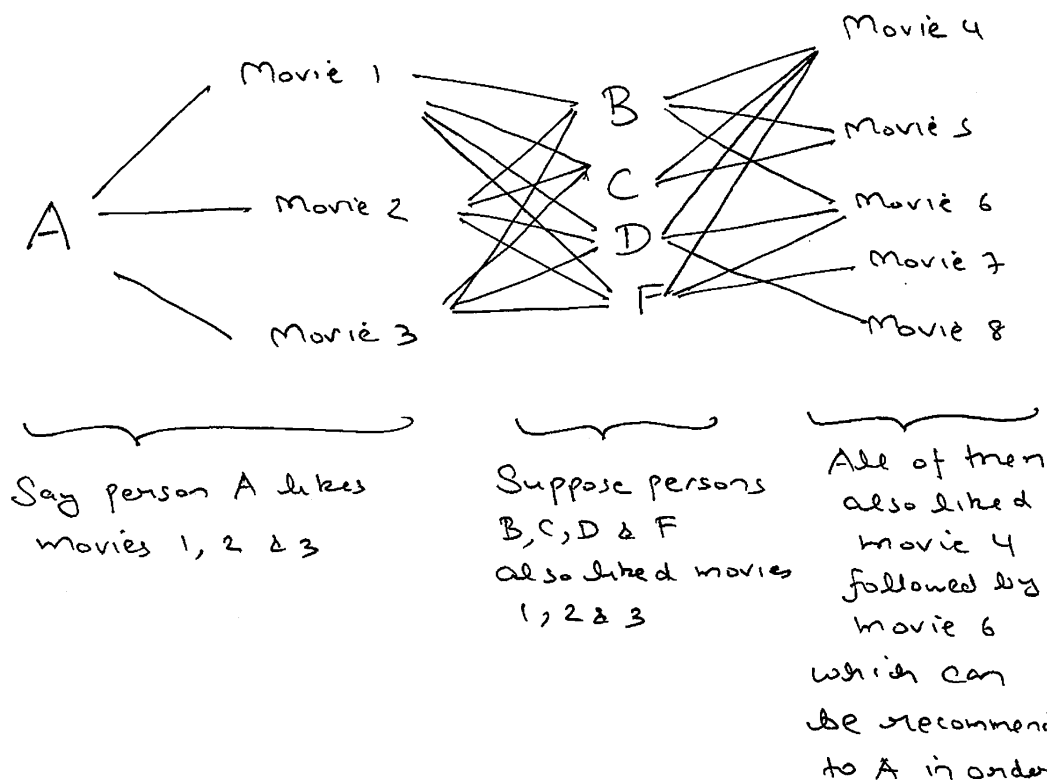 Movie 1
Movie 2
Movie 3
A
B
C
D
F
Movie 4
Movie 5
Movie 6
Movie 7
Movie 8
Say person A likes
movies 1, 2 & 3
Suppose persons
B, C, D & F
also liked movies
1, 2 & 3
All of them
also liked
movie 4
followed by
movie 6
which can
be recommend
to A in order